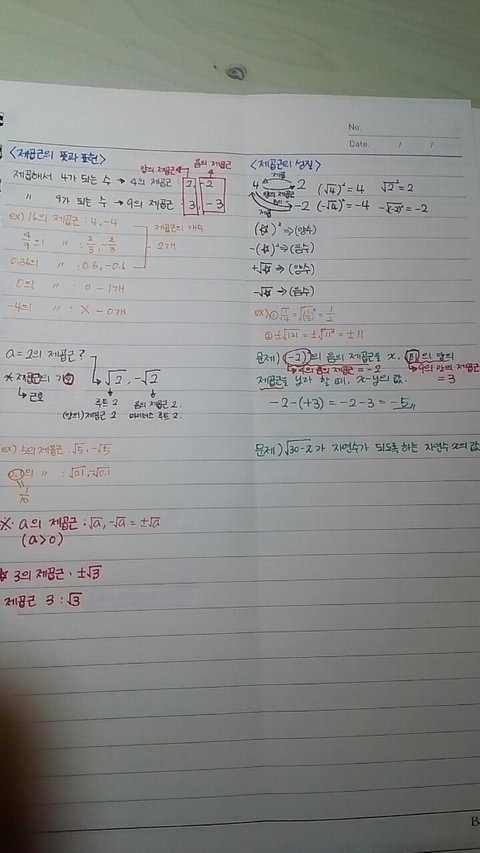 No.
Date. / /
<제곱근의 뜻과 표현>
양의 제곱근 음의 제곱근
제곱해서 4가 되는 수 → 4의 제곱근 2, -2
〃 9가 되는 수 → 9의 제곱근 3 -3
ex) 16의 제곱근 : 4, -4
제곱근의 개수
4/9의 〃 : 2/3, -2/3
2개
0.36의 〃 : 0.6, -0.6
0의 〃 : 0 - 1개
-4의 〃 : X - 0개
a = 2의 제곱근?
√2, -√2
*제곱근의 기호
근호
루트 2 음의 제곱근 2.
(양의) 제곱근 2 마이너스 루트 2.
ex) 5의 제곱근 : √5, -√5
0.1의 〃 : √0.1, -√0.1
1/10
※ a의 제곱근 : √a, -√a = ±√a
(a>0)
☆ 3의 제곱근 : ±√3
제곱근 3 : √3
<제곱근의 성질>
제곱
4 2 (√4)² = 4 √2² = 2
양의 제곱근
-2 (-√4)² = -4 -√(-2)² = -2
제곱
(√☆)² ⇒ (양수)
-(√☆)² ⇒ (음수)
+√☆² ⇒ (양수)
-√☆² ⇒ (음수)
ex) ① √1/4 = √(1/2)² = 1/2
② ±√121 = ±√11² = ±11
문제) (-2)²의 음의 제곱근을 x, √81의 양의
4의 음의 제곱근 = -2 9의 양의 제곱근
제곱근을 y라 할 때, x-y의 값.
= 3
-2-(+3) = -2-3 = -5
문제) √30-x가 자연수가 되도록 하는 자연수 x의 값
B